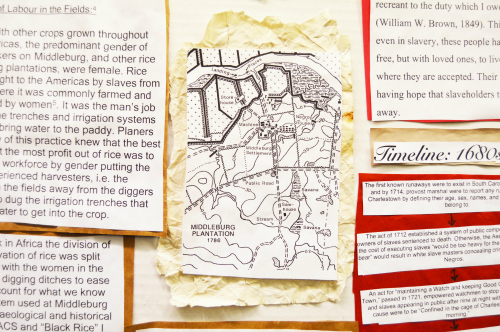 of Labour in the Fields:⁴
ith other crops grown throughout
ricas, the predominant gender of
kers on Middleburg, and other rice
g plantations, were female. Rice
ght to the Americas by slaves from
ere it was commonly farmed and
d by women⁵. It was the man's job
e trenches and irrigation systems
bring water to the paddy. Planers
y of this practice knew that the best
t the most profit out of rice was to
workforce by gender putting the
erienced harvesters, i.e. the
the fields away from the diggers
o dug the irrigation trenches that
ater to get into the crop.
k in Africa the division of
vation of rice was split
with the women in the
digging ditches to ease
count for what we know
tem used at Middleburg
aeological and historical
ACS and "Black Rice" I
Middleburg
Settlement
Public Road
Stream
Savana
Savana
MIDDLEBURG
PLANTATION
1786
recreant to the duty which I owe
(William W. Brown, 1849). Thi
even in slavery, these people ha
free, but with loved ones, to live
where they are accepted. Their
having hope that slaveholders t
away.
Timeline: 1680s
The first known runaways were to exist in South Car
and by 1714, provost marshal were to report any ru
Charlestown by defining their age, sex, names, and
belong to.
The act of 1712 established a system of public compe
owners of slaves sentenced to death. Otherwise, the Ass
the cost of executing slaves "would be too heavy for the
bear" would result in white slave masters concealing crim
Negros.
An act for "maintaining a Watch and keeping Good O
Town," passed in 1721, empowered watchmen to stop
and slaves appearing in public after nine at night wit
cause were to be "Confined in the cage of Charles
morning."